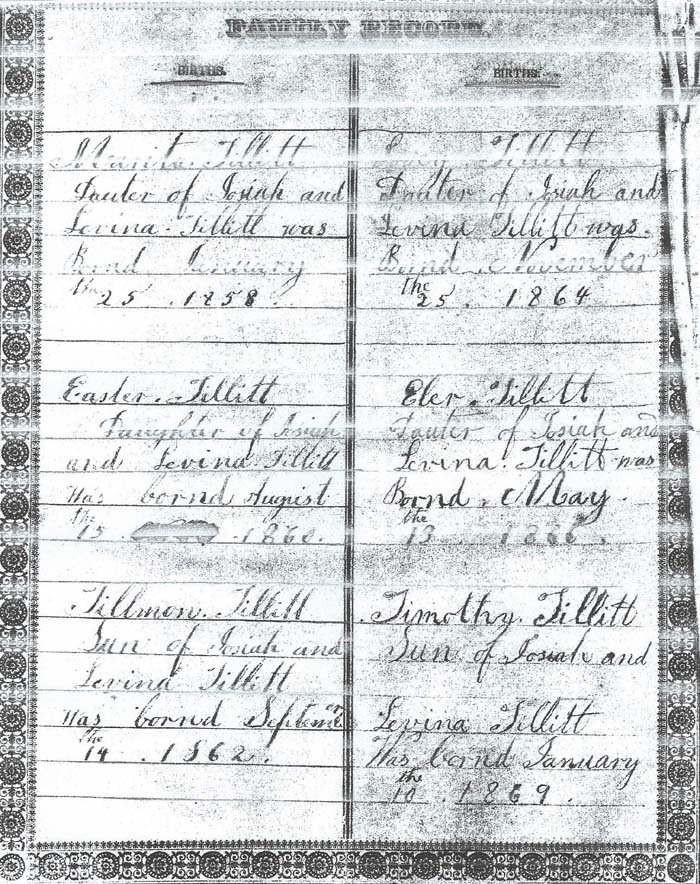 FAMILY RECORD.
BIRTHS.
Tillitt
Dauter of Josiah and
Levina. Tillitt was
Bornd January
the 25 . 1858 .
Easter. Tillitt
Daughter of Josiah
and Levina Tillitt
Was bornd August
the 15 . 1860.
Tillmon. Tillitt
Sun of Josiah and
Levina Tillitt
Was bornd September
the 14 . 1862 .
BIRTHS.
Lucy Tillitt
Dauter of Josiah and
Levina Tillitt was.
Bornd . November
the 25 . 1864
Eler . Tillitt
Dauter of Josiah and
Levina. Tillitt was
Bornd . May .
the 13 1866 .
Timothy. Tillitt
Sun of Josiah and
Levina Tillitt
Was bornd January
the 10 . 1869 .